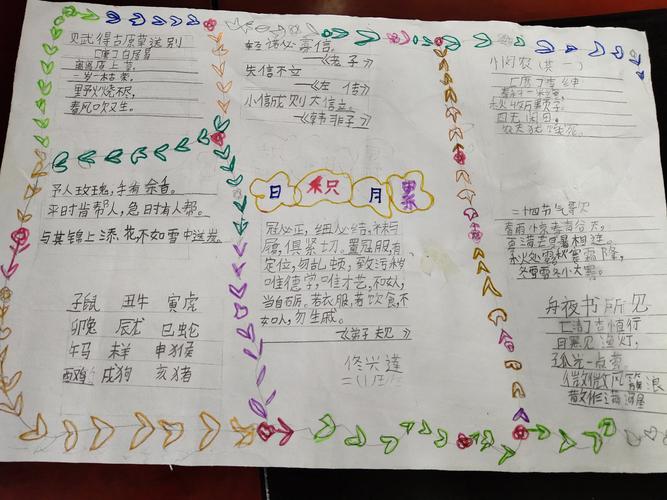 赋得古原草送别
[唐] 白居易
离离原上草,
一岁一枯荣,
野火烧不尽,
春风吹又生。
予人玫瑰,手有余香。
平时肯帮人,急时有人帮。
与其锦上添花不如雪中送炭。
子鼠 丑牛 寅虎
卯兔 辰龙 巳蛇
午马 未羊 申猴
酉鸡 戌狗 亥猪
轻诺必寡信。
——《老子》
失信不立
——《左传》
小信成则大信立。
——《韩非子》
日积月累
冠必正,纽必结,袜与
履,俱紧切。置冠服,有
定位,勿乱顿,致污秽
唯德学,唯才艺,不如人,
当自砺。若衣服,若饮食,不
如人,勿生戚。
《弟子规》
悯农(其一)
[唐]李绅
秋收万颗子。
四海无闲田,
农夫犹饿死。
二十四节气歌
春雨惊春清谷天,
夏满芒夏暑相连。
秋处露秋寒霜降,
冬雪雪冬小大寒。
舟夜书所见
[清]查慎行
月黑见渔灯,
孤光一点萤
微微风簇浪
散作满河星